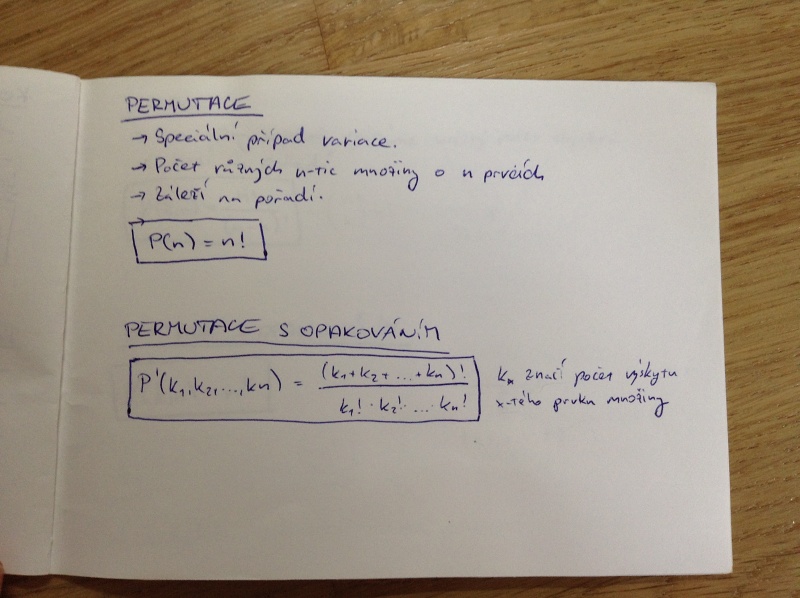 PERMUTACE
→ Speciální případ variace.
→ Počet různých n-tic množiny o n prvcích
→ Záleží na pořadí.
→
P(n) = n!
PERMUTACE S OPAKOVÁNÍM
P'(k₁,k₂,...,kn) = (k₁+k₂+...+kn)! / k₁!·k₂!·...kn!
kₓ značí počet výskytu
x-tého prvku množiny